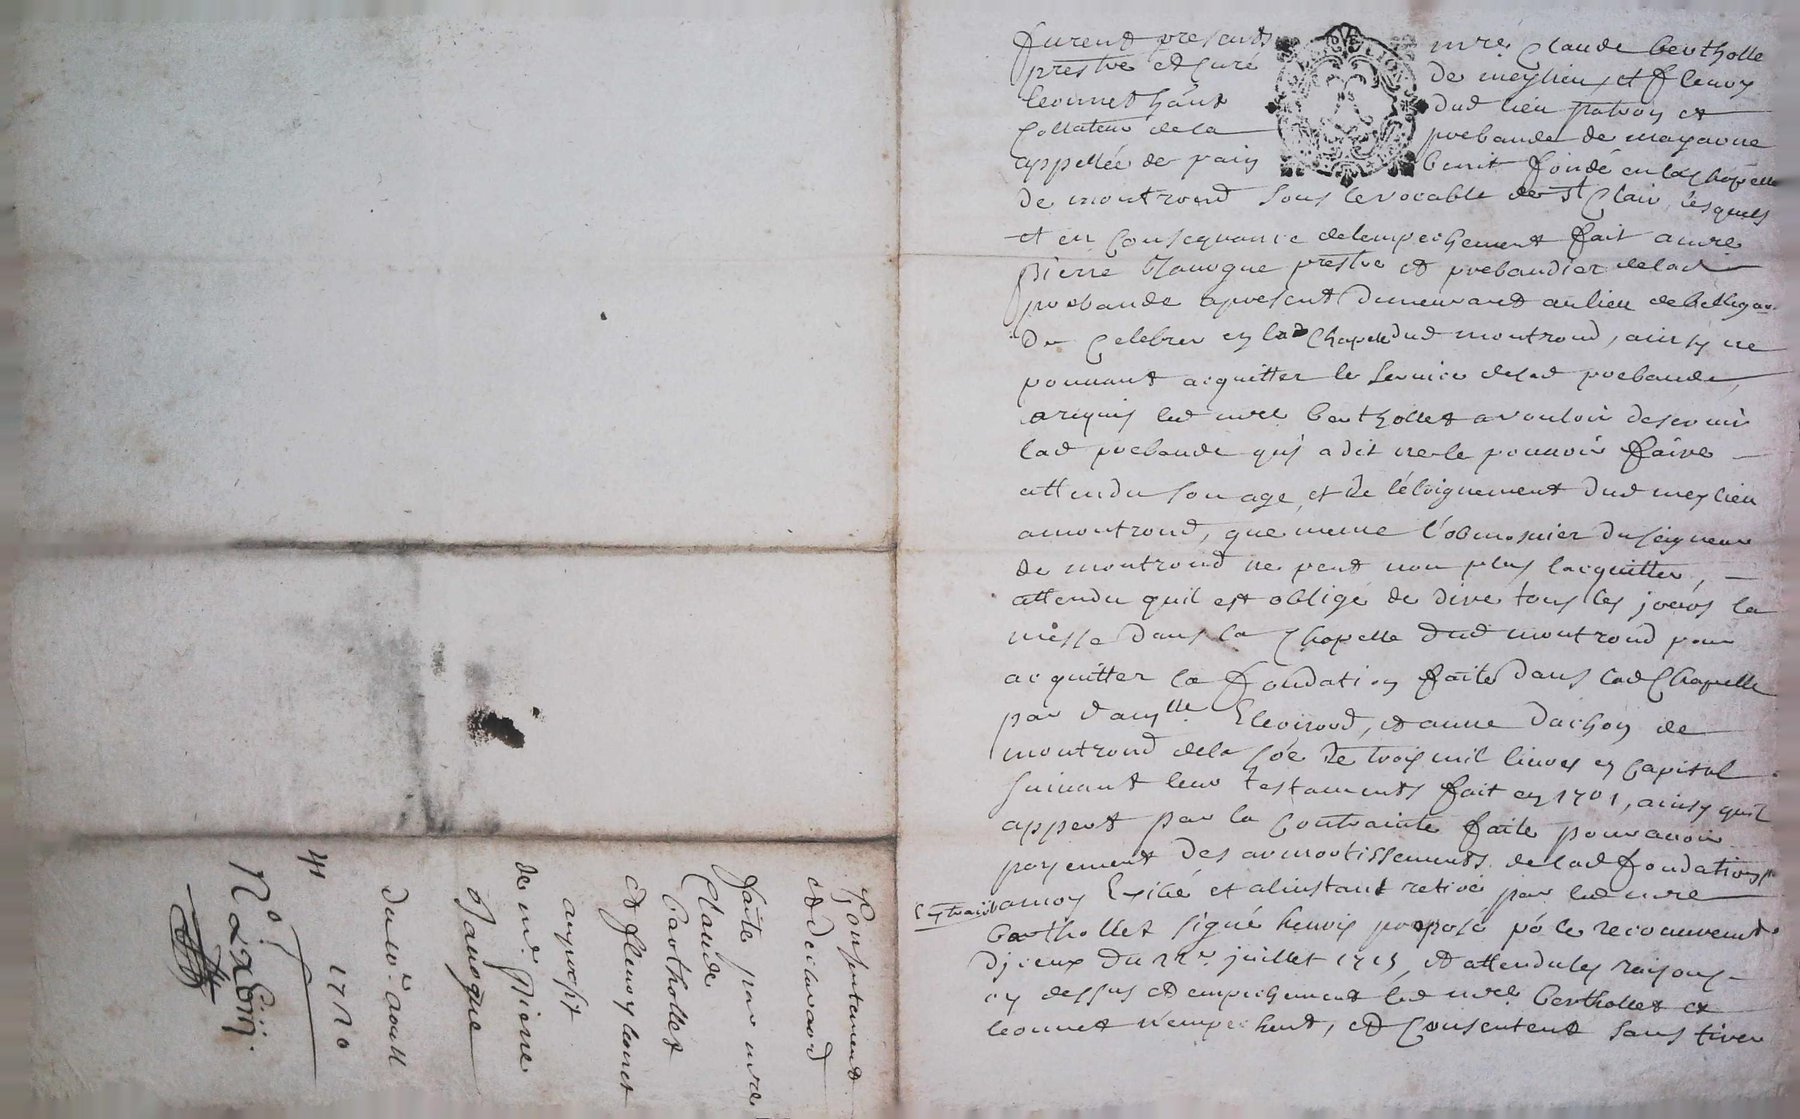 furent presents mre Claude bertholle
prestre et Curé de meylieu, et fleury
leonnet hãnt dud lieu patron et
Collateur de la prebande de mayavne
appellée de pain benit fondé en la Chapelle
de montrond sous le vocable de St Clair, lesquels
et en Consequance de lempechement fait a mre
pierre Janoque prestre et prebandier de lad
prebande apresent demeurant au lieu de belligar
De Celebrer en lad Chapelle dud montrond, ainsy ne
pouuant acquitter le seruice de lad prebande,
a requis led mre berthollet a vouloir deseruir
lad prebande quj a dit ne le pouuoir faire
attendu son age, et de l'eloignement dud meylieu
a montrond, que meme l'obmosnier du seigneur
de montrond ne peut non plus lacquitter,
attendu quil est obligé de dire tous les jours la
messe dans la Chapelle dud montrond pour
acquitter la fondation faite dans lad Chapelle
par damlle Eleonord, et anne dachon de
montrond de la sõe de trois mil liures en Capital
suiuant leur testaments fait en 1701, ainsy quil
appert par la Contrainte faite pour auoir
payement des amortissements de lad fondation
Extrait amoy Exibé et alinstant retiré par led mre
berthollet signé henris preposé põ le recouurement
Djceux du 22e juillet 1715, et attendu les raisons
cy dessus et empechement led mre berthollet et
leonnet n'empechent, et Consentent sans tirer
Consentement
et declaraõn
faite par mre
Claude
bertholet
et fleury lonet
au profit
de mre pierre
Janoque
du 10e aoust
1720
41
No